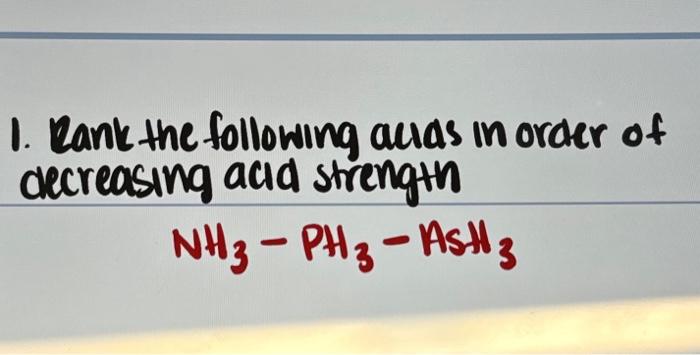 1. Rank the following acids in order of
decreasing acid strength
NH3 - PH3 - AsH3